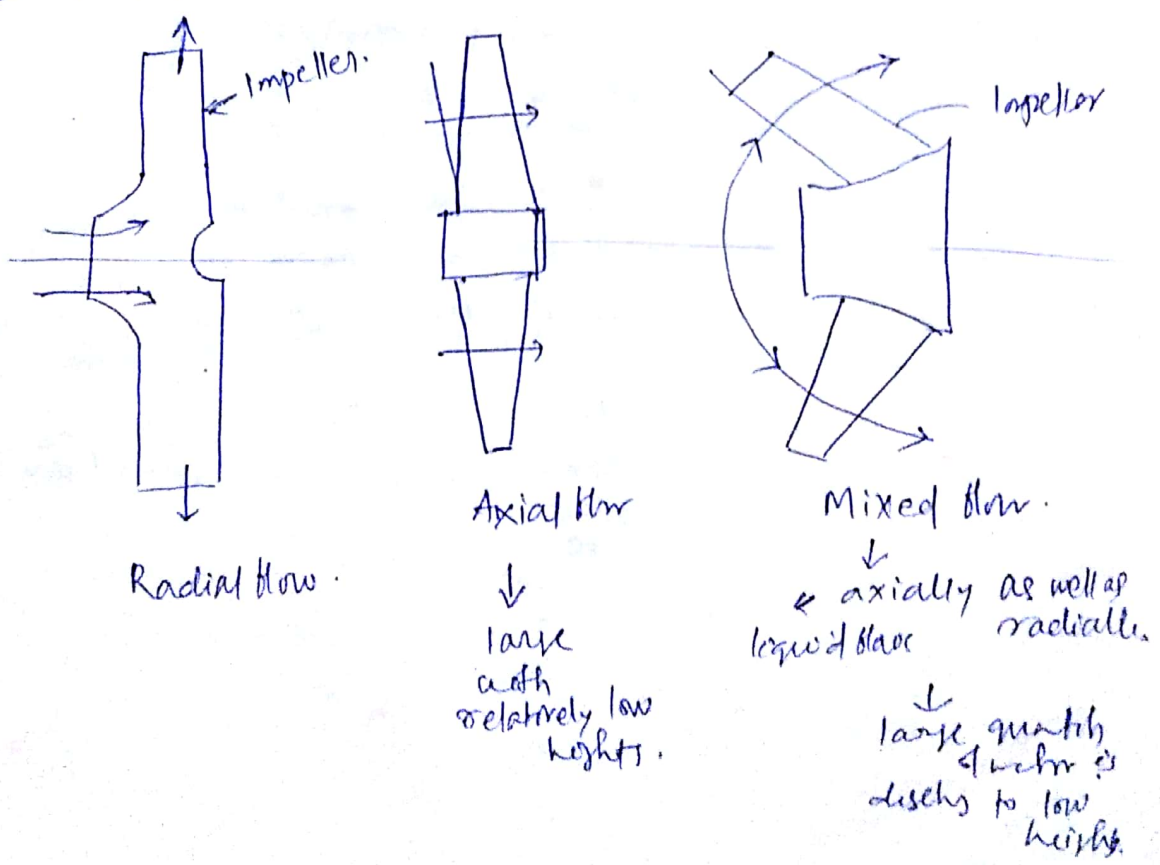 Impeller.
Impeller
Radial flow.
Axial flow
large
with
relatively low
heights.
Mixed flow.
axially as well as
radially.
liquid
large quantity
of water is
to low
heights.